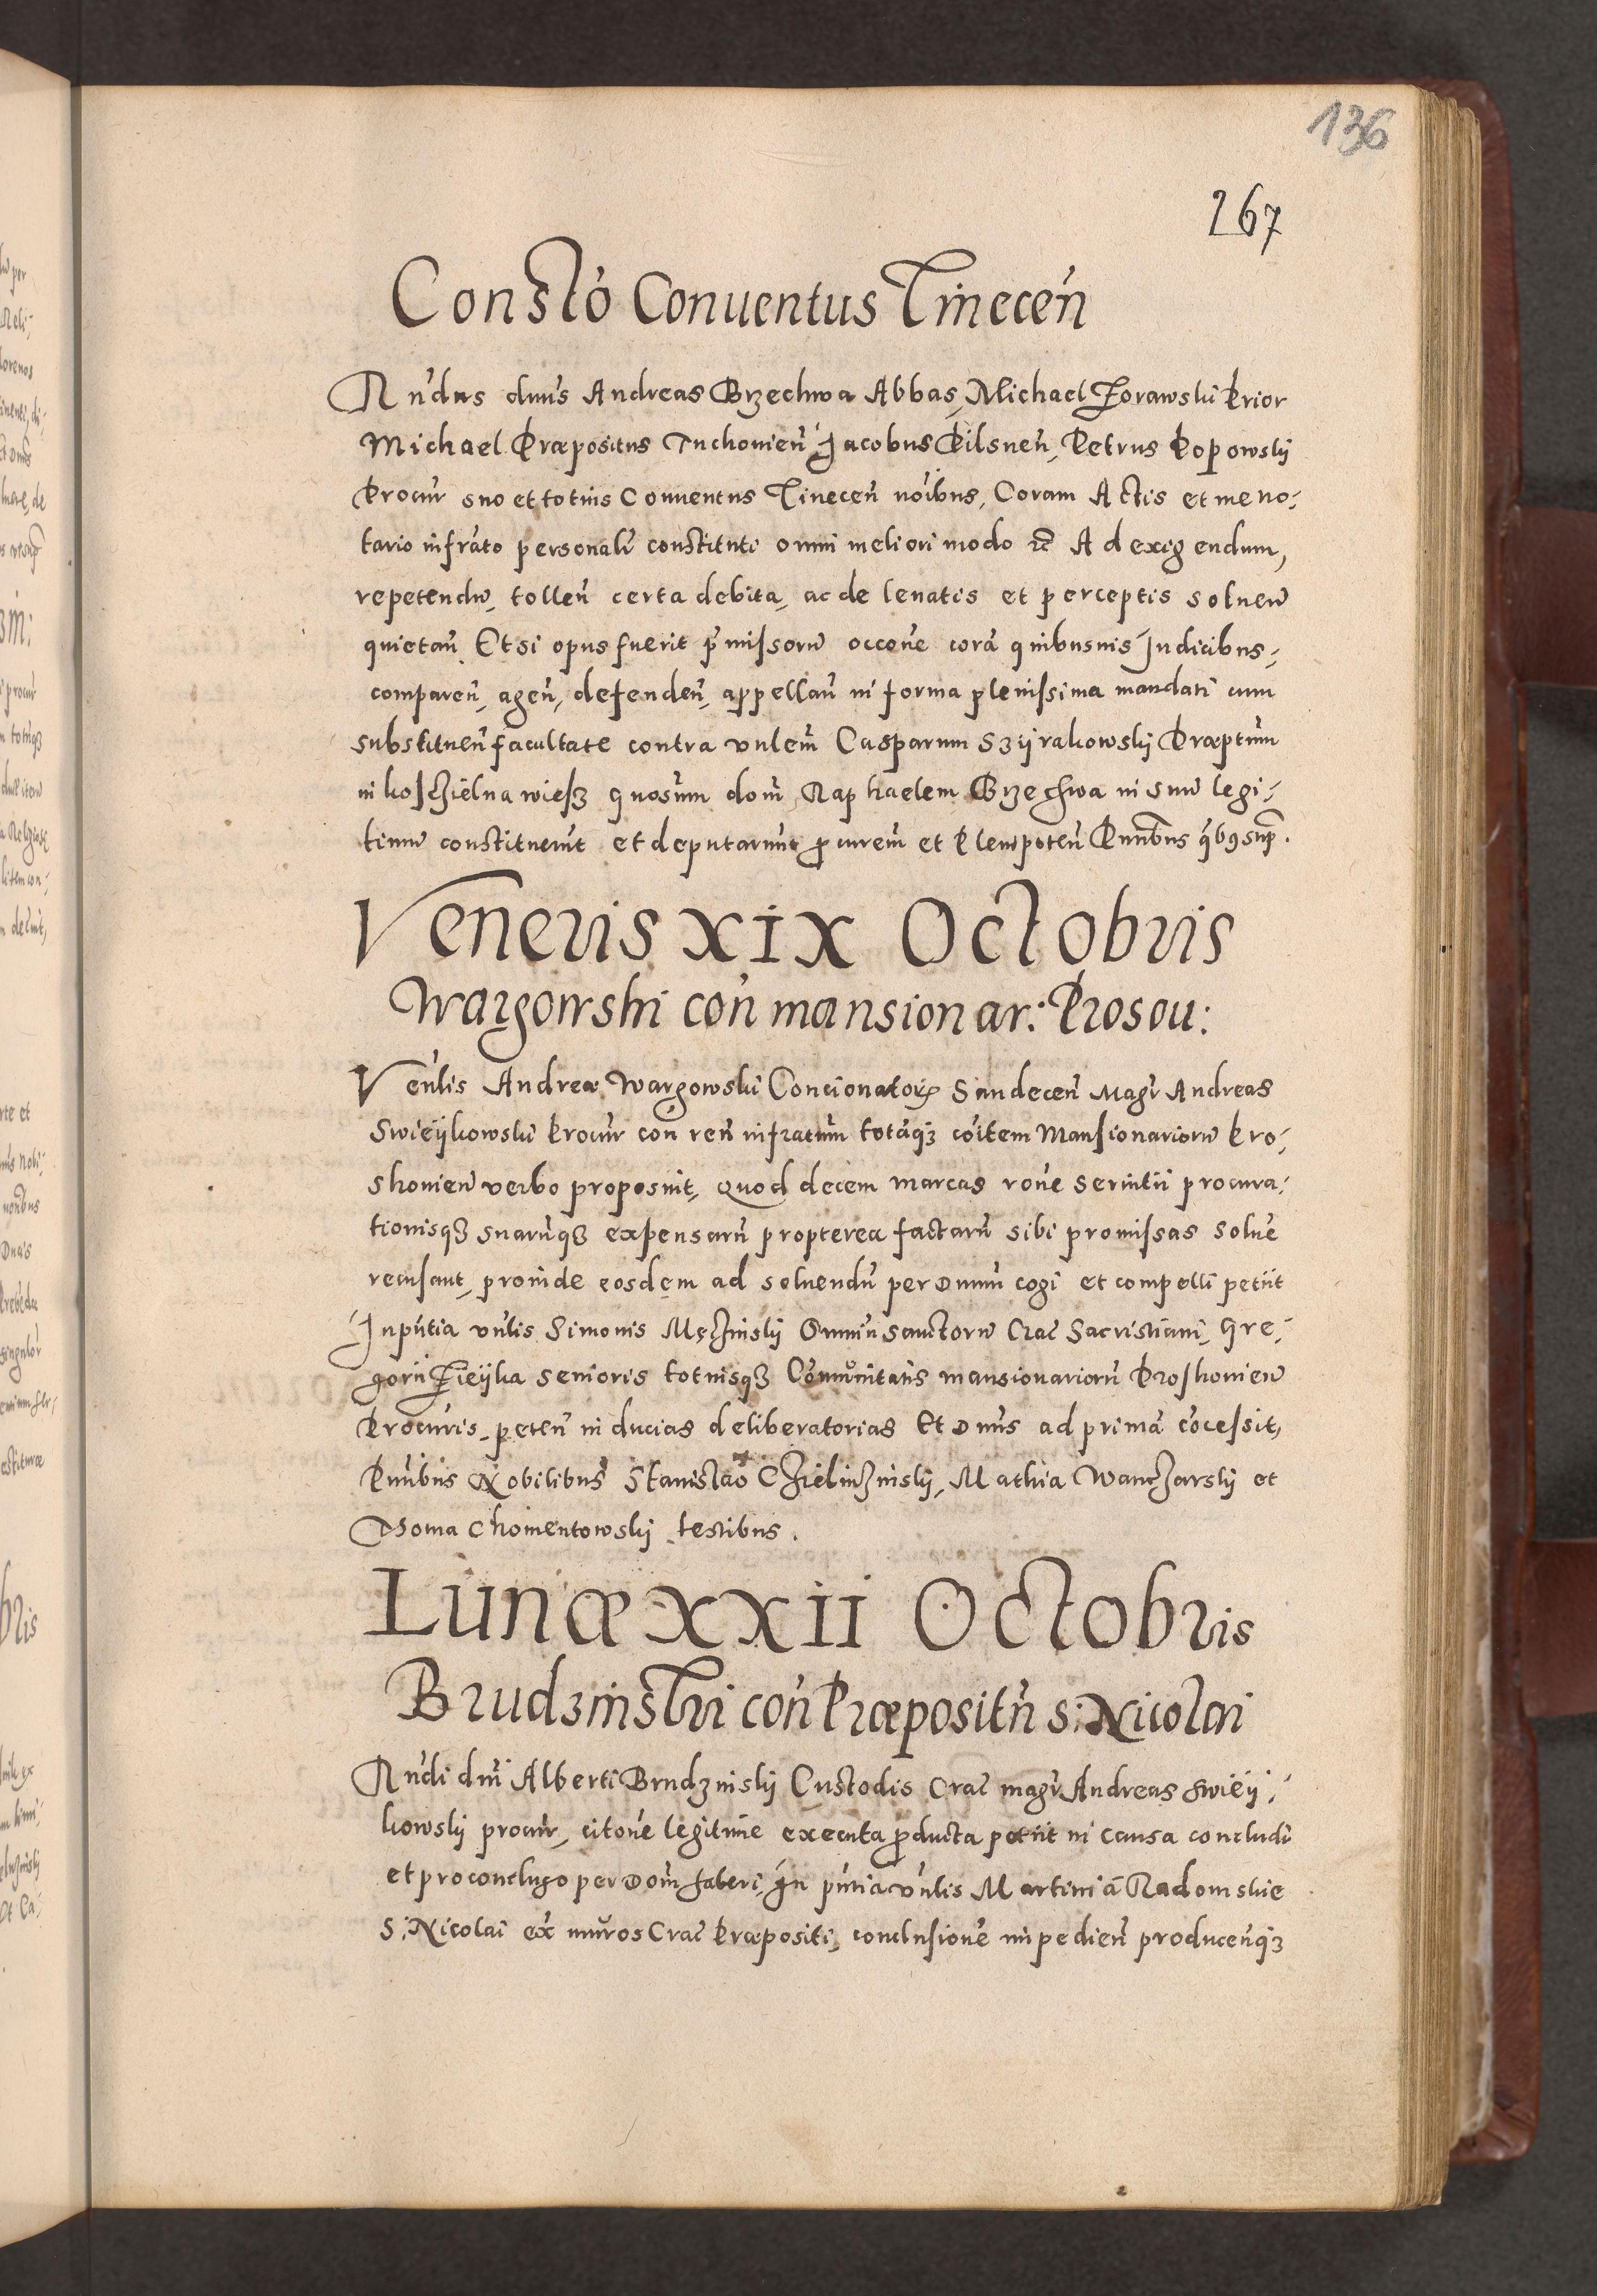 136
267
Constó Conuentus Tinecen̄
Rn̄dus dnūs Andreas Brzechwa Abbas, Michael Zorawski Prior
Michael Præpositus Tuchouien̄ Jacobus Pilsnen̄, Petrus Popowskij
Procur̄ suo et totius Conuentus Tinecen̄ noībus, Coram Actis et me no-
tario infrāto personalr̄ constituti omni meliori modo &c Ad exigendum,
repetendū, tollen̄ certa debita, ac de leuatis et perceptis soluen̄
quietan̄. Et si opus fuerit p̄missorū occōne corā quibusuis Judicibus,
comparen̄, agen̄, defenden̄, appellan̄ in forma plenissima mandati cum
substituen̄ facultate contra vnlem̄ Casparum Szijrakowskij Præptūm
in kosczielna wiesz quosum̄ dom̄ Raphaelem Brzechwa in suū legi-
timū constituerūt et deputarūnt procurem̄ et Plenipoten̄ Pnn̄tbus qb9 sup̄.
Veneris XIX Octobris
Wargowski con̄ mansionar: Prosou:
Vēnlis Andreæ Wargowski Concionatoris Sandecen̄ Magr̄ Andreas
Swieijkowski Procur̄ con̄ ren̄ infratūm totāqз cōitem Mansionariorū Pro-
shouien̄ verbo proposuit, quod decem marcas rōne seruitii procura-
tionisqз suarūqз expensarū propterea factarū sibi promissas soluē
recusant, proinde eosdem ad soluendū per Dnum̄ cogi et compelli petiit
In pn̄tia vn̄lis Simonis Męczinskij Omniū sanctorū Crac̄ Sacristiani, Gre-
gorij Zieijka senioris totiusqз Cōmunitatis mansionariorū Proshouien̄
Procur̄is, peten̄ inducias deliberatorias Et Dnūs ad primā cōcessit,
Pnn̄bus Nobilibus Stanislao Chzielinzniskij, Mathia Wanczarskij et
Thoma Chomentowskij testibus.
Lunæ XXII Octobris
Brudzinski con̄ Præpositū S: Nicolai
Rn̄di dn̄i Alberti Brudzinskij Custodis Crac̄ magr̄ Andreas Swieij-
kowskij procur̄, citōne legitime executa producta petiit in causa concludi
et pro concluso per Dom̄ haberi, In pn̄tia vn̄lis Martini ā Radomskie
S: Nicolai ex̄ muros Crac̄ Præpositi, conclusionē impedien̄ producen̄qз